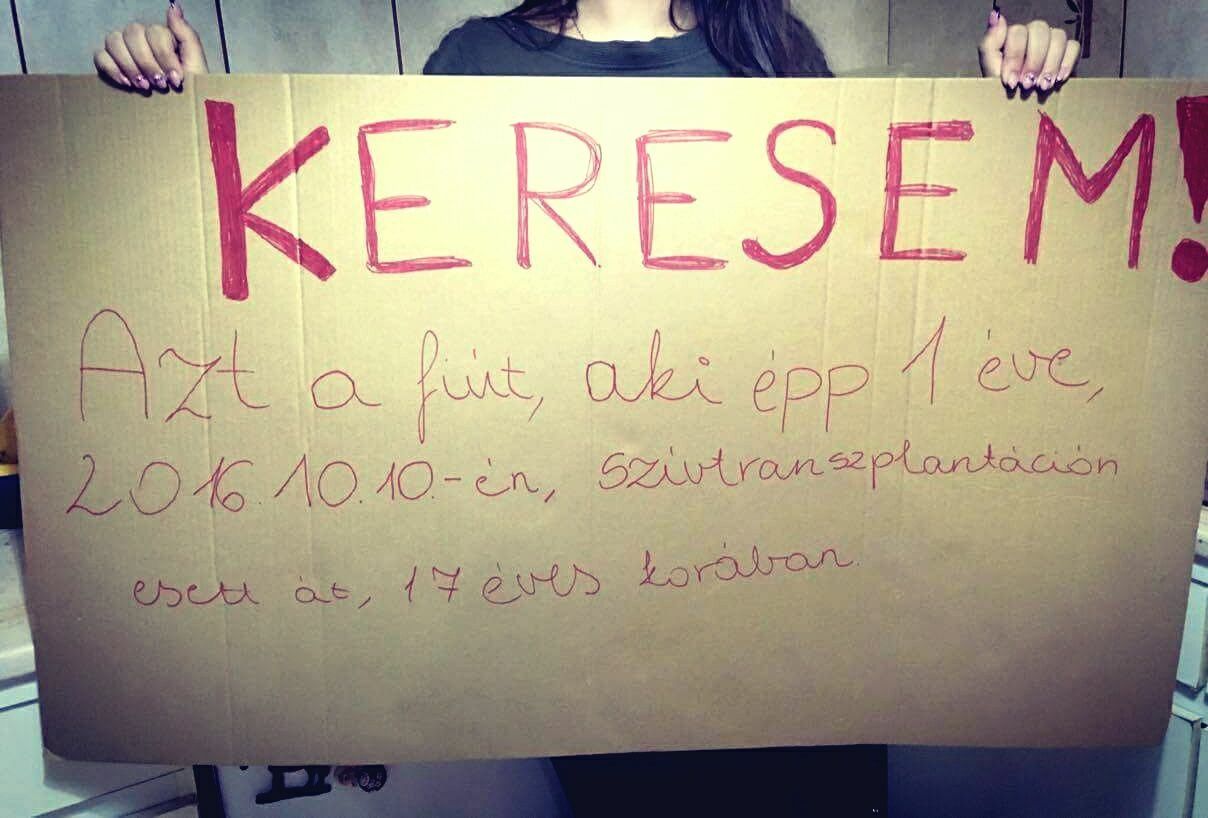 KERESEM!
Azt a fiút, aki épp 1 éve,
2016.10.10.-én, szívtranszplantáción
esett át, 17 éves korában.